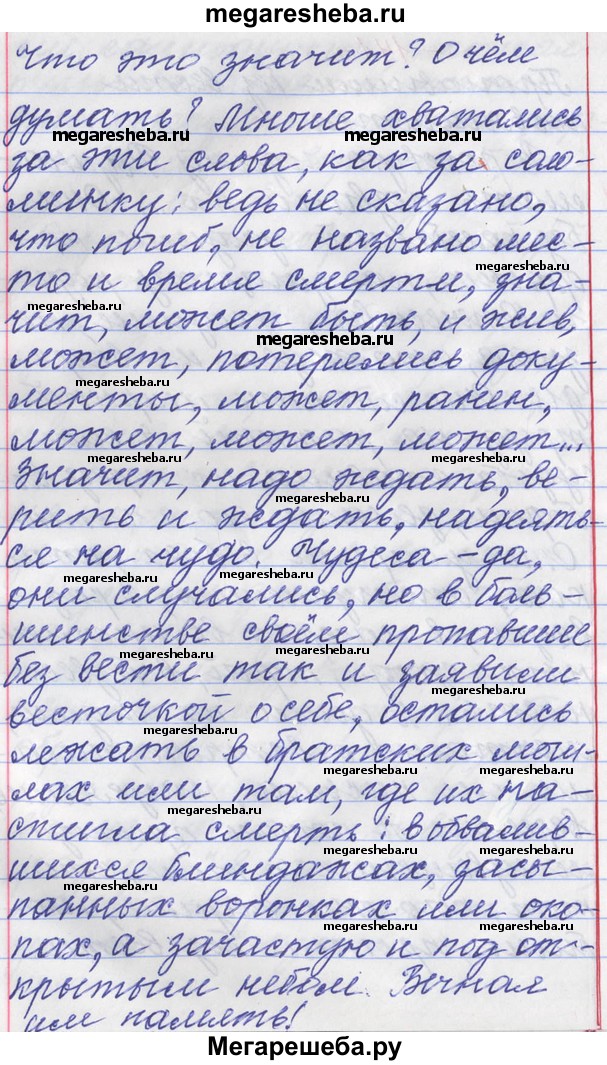 megaresheba.ru
Что это значит? О чём
думать? Многие хватались
megaresheba.ru megaresheba.ru
за эти слова, как за соло-
минку: ведь не сказано,
что погиб, не названо мес-
megaresheba.ru
то и время смерти, зна-
megaresheba.ru
чит, может быть, и жив,
megaresheba.ru
можеm, потерялись доку-
megaresheba.ru
менты, может, ранен,
megaresheba.ru
может, может, может...
Значит, надо ждать, ве-
megaresheba.ru
рить и ждать, надеять-
ся на чудо. Чудеса - да,
megaresheba.ru
megaresheba.ru
они случались, но в боль-
шинстве своём пропавшие
megaresheba.ru
без вести так и заявили
megaresheba.ru
весточкой о себе, остались
лежать в братских моги-
megaresheba.ru megaresheba.ru
лах или там, где их на-
megaresheba.ru
стигла смерть: в обвалив-
megaresheba.ru
шихся блиндажах, засы-
megaresheba.ru
панных воронках или око-
megaresheba.ru
пах, а зачастую и под от-
megaresheba.ru
крытым небом. Вечная
им память!
megaresheba.ru
Мегарешеба.ру